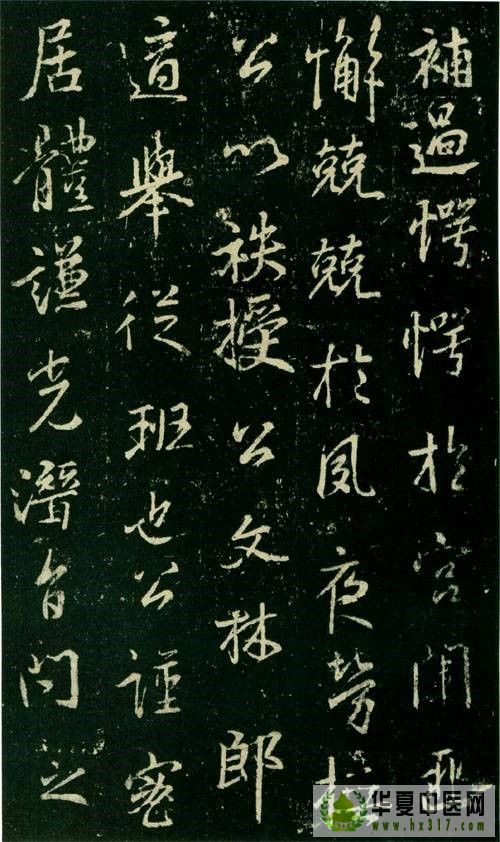 補過愕愕於宮闈匪
懈兢兢於夙夜勞
公以秩授公文林郎
適舉從班也公謹密
居體謙光潛旨問之
华夏中医网
www.hx317.com